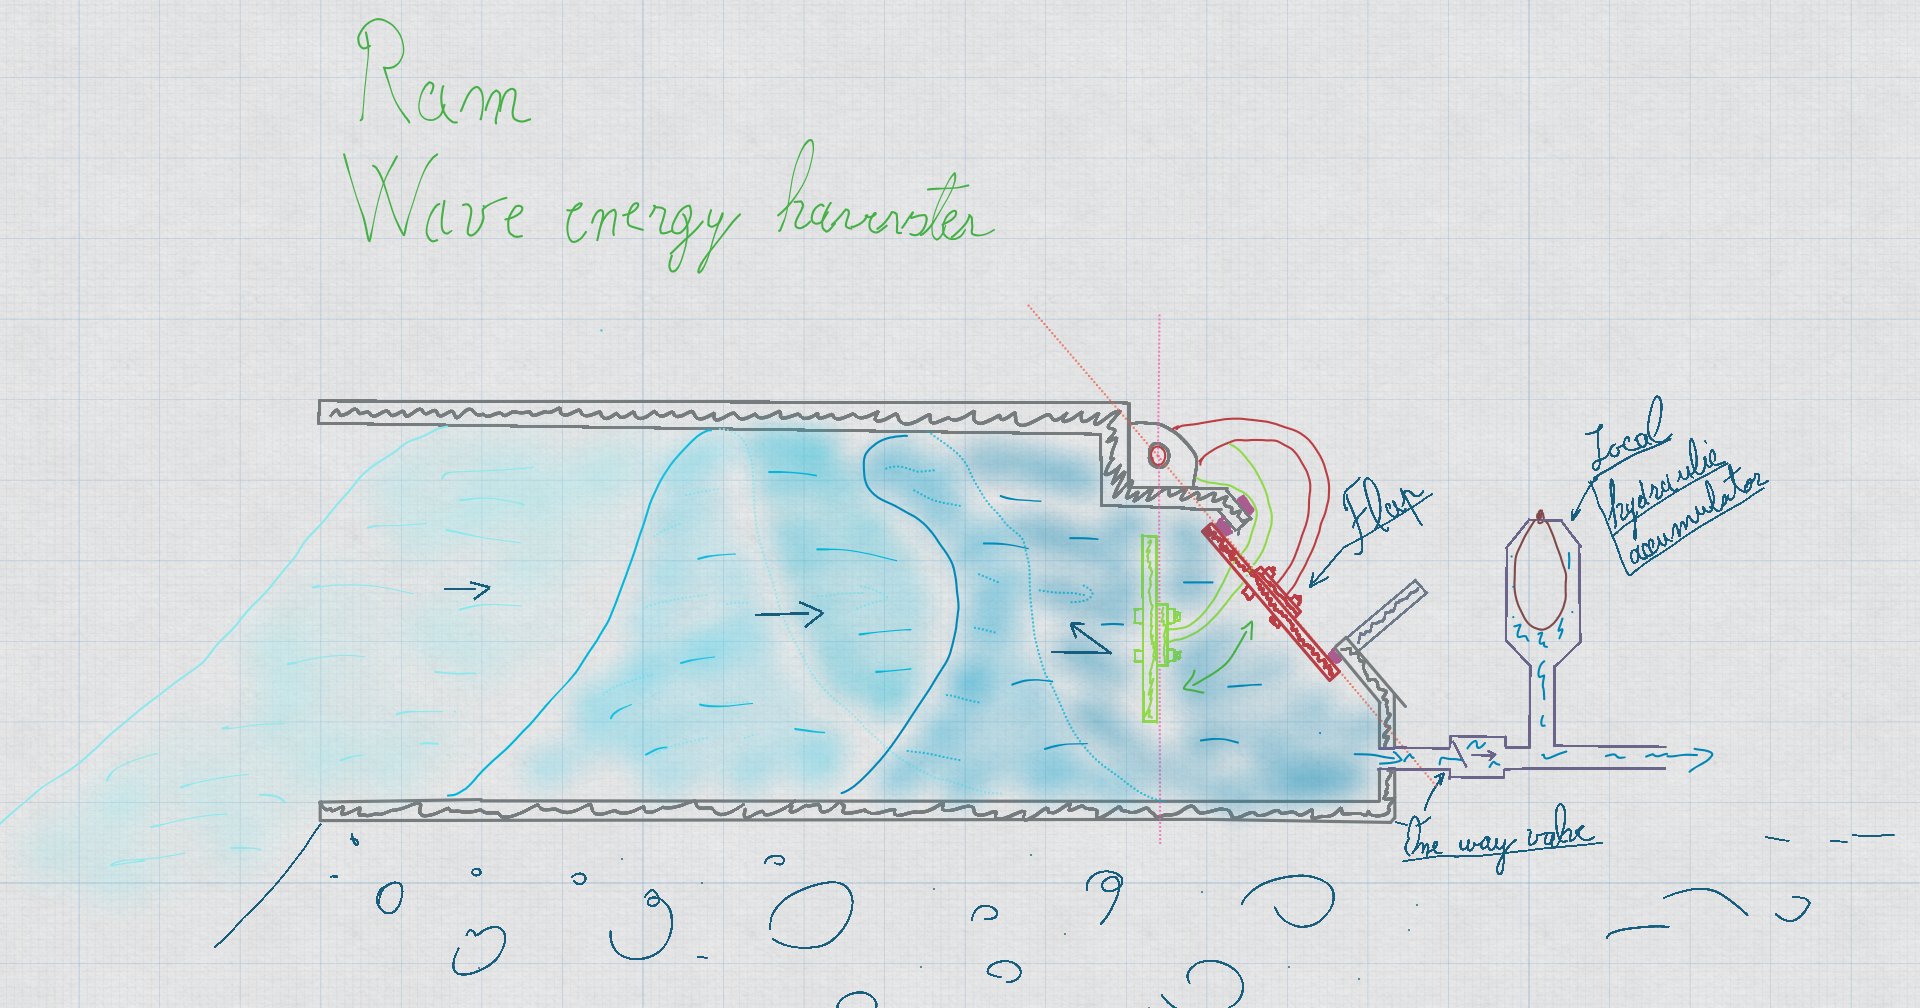 Ram
Wave energy harvrster
Flap
Local
hydraulic
accumulator
One way valve